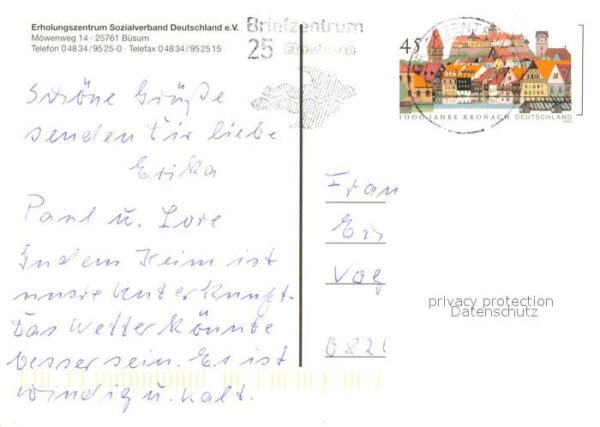 Erholungszentrum Sozialverband Deutschland e.V.
Möwenweg 14 - 25761 Büsum
Telefon 0 48 34 / 95 25-0 · Telefax 0 48 34 / 95 25 15
Briefzentrum
25
45
1000 JAHRE KRONACH DEUTSCHLAND
Schöne Grüße
senden Dir liebe
Erika
Paul u. Lore
In dem Heim ist
unsre Unterkunft.
Das Wetter könnte
besser sein. Es ist
windig u. kalt.
Frau
Er
Vog
082
privacy protection
Datenschutz